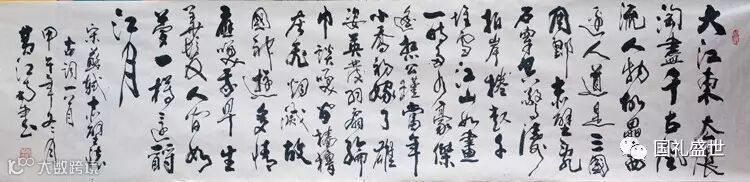 大江東去浪
淘盡千古風
流人物故壘西
邊人道是三國
周郎赤壁亂
石穿空驚濤
拍岸捲起千
堆雪江山如畫
一時多少豪傑
遙想公瑾當年
小喬初嫁了雄
姿英發羽扇綸
巾談笑間檣櫓
灰飛烟滅故
國神遊多情
應笑我早生
華髮人間如
夢一樽還酹
江月
宋蘇軾赤壁懷
古詞一首
甲午年冬月
大数跨境
国礼盛世